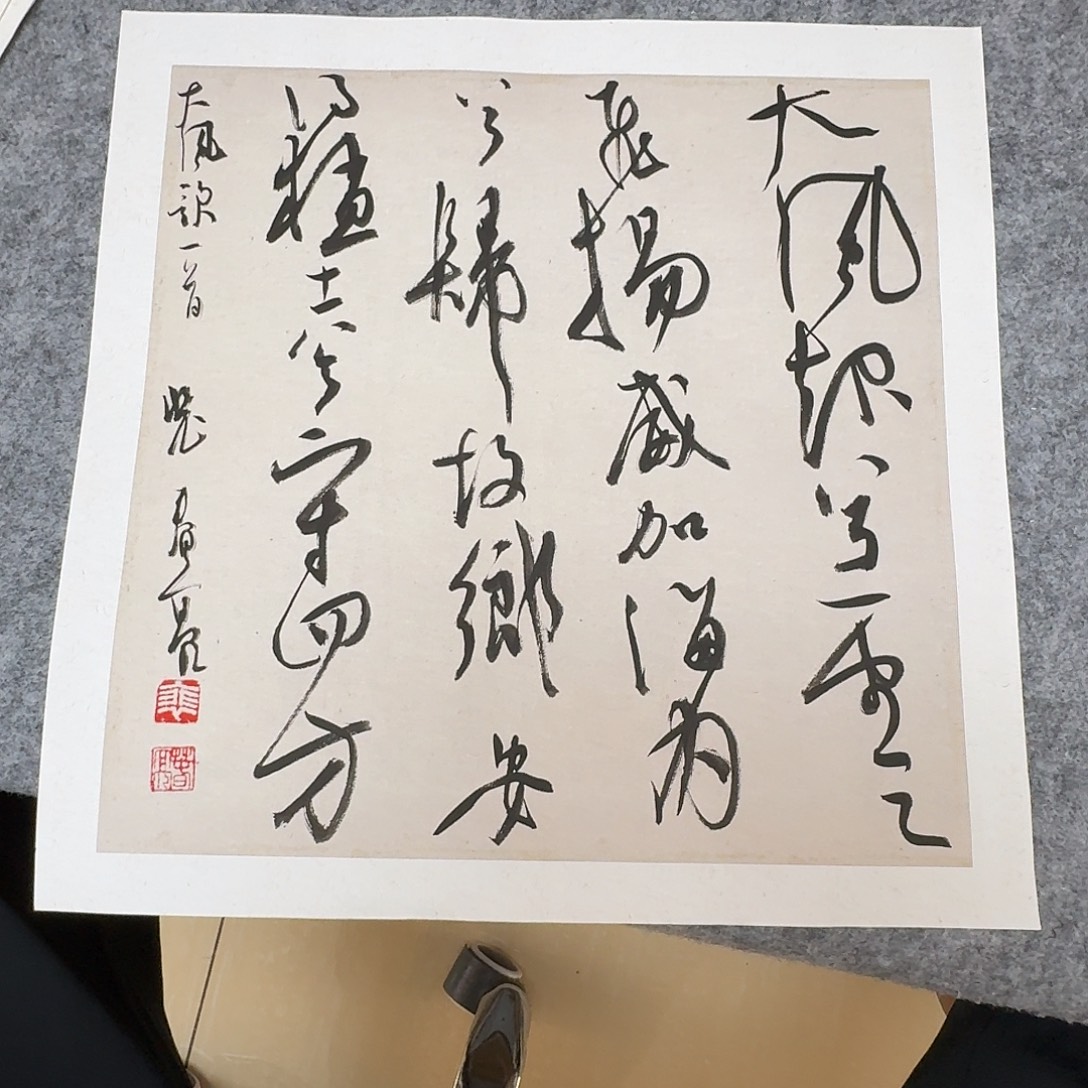 大風起兮雲
飛揚威加海內
兮歸故鄉安
得猛士兮守四方
大風歌一首